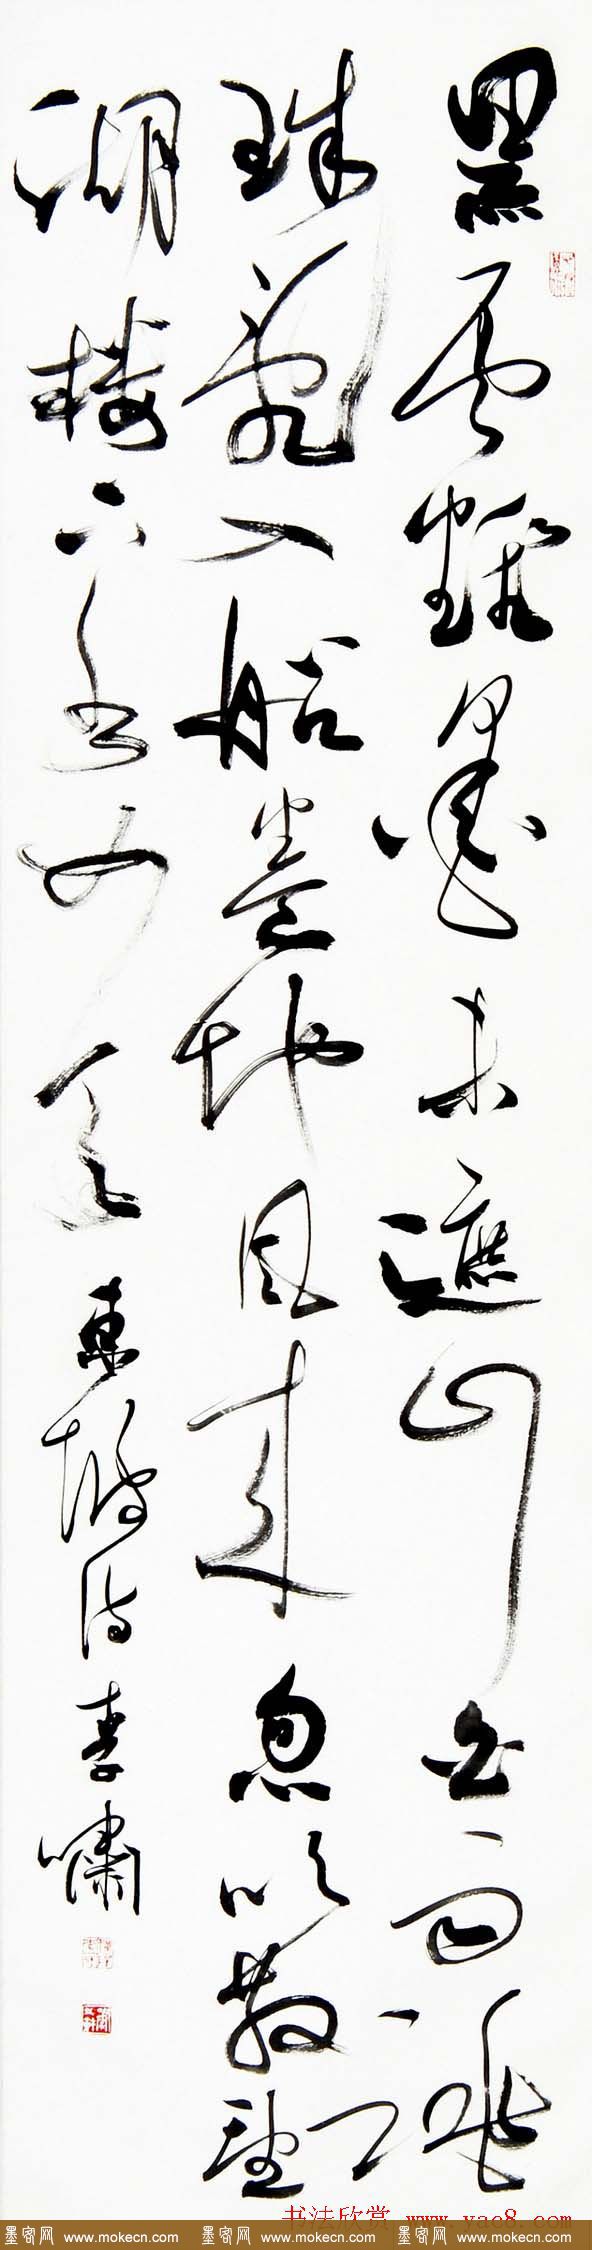 黑雲翻墨未遮山白雨跳
珠亂入船卷地風來忽吹散望
湖樓下水如天 東坡詩 李嘯
书法欣赏 www.yac8.com
墨客网 www.mokecn.com 墨客网 www.mokecn.com 墨客网 www.mokecn.com